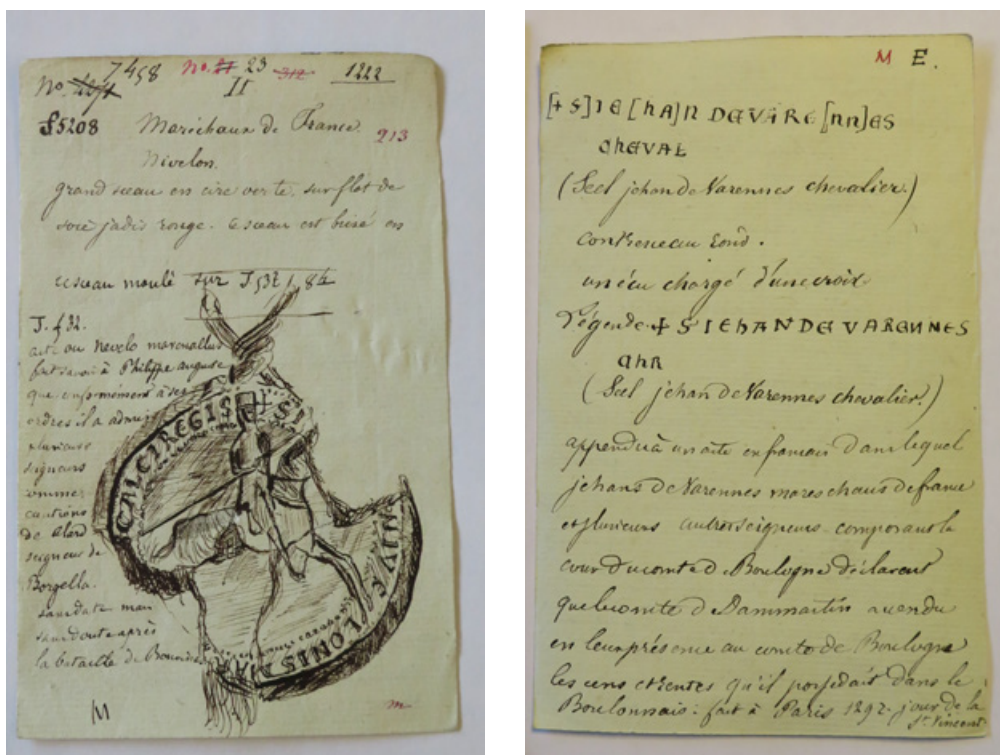 7458 no. 23 1222
No II
f5208 Maréchaux de France. 213
Nivelon.
grand sceau en cire verte, sur flot de
soie jadis rouge. ce sceau est brisé en
ce sceau moulé sur J 532 / 8
J. 432.
acte ou Nevelo marescallus
fait savoir à Philippe auguste
que conformément à ses
ordres il a admis
plusieurs
seigneurs
comme
cautions
de
seigneur de
Borgella.
sans date mais
sans doute après
la bataille de Bouvines
CALCIREGIS + SI
LONIS
M m
M E.
[+ S] IE [hA]N DE VARE [NN]ES
CHEVAL
(Seel jehan de Varennes chevalier.)
contresceau rond.
un écu chargé d'une croix
Légende + S IEHAN DE VARENNES
CHR
(Seel jehan de Varennes chevalier.)
appendu à un acte en francais dans lequel
jehans de Varennes mareschaus de france
et plusieurs autres seigneurs composant la
cour du comte de Boulogne déclarent
que le comte de Dammartin a vendu
en leur présence au comte de Boulogne
les cens et rentes qu'il possédait dans le
Boulonnais : fait à Paris 1292. jour de la
St. Vincent